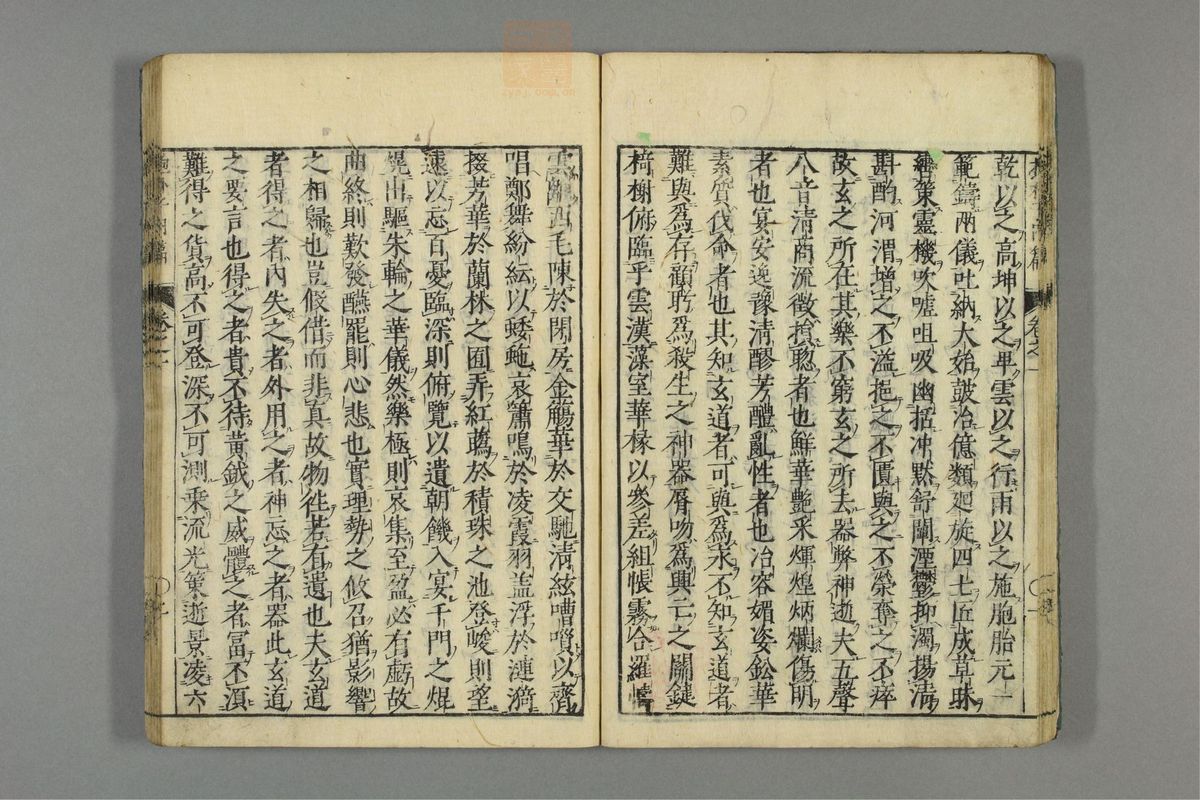 乾以之高坤以之卑雲以之行雨以之施胞胎元一
範鑄兩儀吐納大始鼓冶億類廻旋四七匠成草昧
轡策靈機吹噓呬吸幽括冲默舒闡湮鬱抑濁揚清
斟酌河渭增之不溢挹之不匱與之不榮奪之不瘁
故玄之所在其樂不窮玄之所去器弊神逝夫五聲
八音清商流徴損聦者也鮮華艷采煇煌炳爛傷明
者也宴安逸豫清醪芳醴亂性者也冶容媚姿鈆華
素質伐命者也其知玄道者可與爲永不知玄道者
難與爲存顧眄爲殺生之神器脣吻爲興亡之關鍵
椅榭俯臨乎雲漢藻室華椽以參差組帳霧合羅幬
雲離西毛陳於閑房金觴華於交馳清絃嘈囋以齊
唱鄭舞紛紜以蜲蛇哀簫鳴於凌霞羽盖浮於漣漪
掇芳華於蘭林之囿弄紅蘤於積珠之池登峻則望
遠以忘百憂臨深則俯覽以遺朝饑入宴千門之焜
熀出驅朱輪之華儀然樂極則哀集至盈必有虧故
曲終則歎發醼罷則心悲也實理勢之攸召猶影響
之相歸也豈假借而非眞故物徃若有遺也夫玄道
者得之者內失之者外用之者神忘之者器此玄道
之要言也得之者貴不待黃鉞之威體之者富不湏
難得之貨高不可登深不可測乗流光策逝景凌六
卷之一